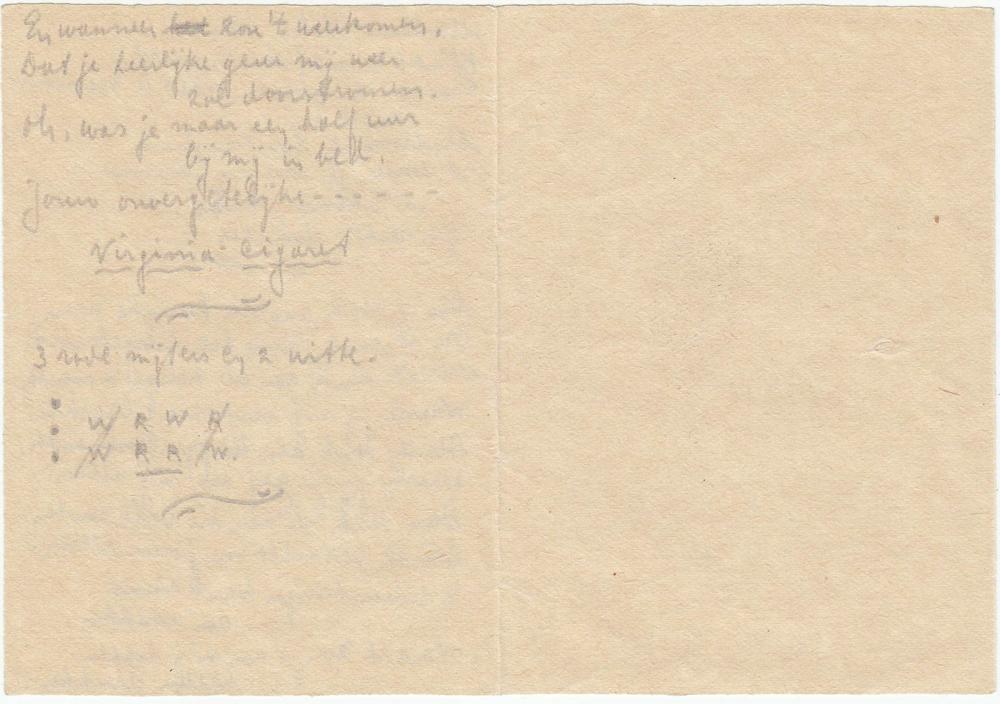 En wanneer zou 't weerkomen,
Dat je heerlijke geur mij weer
zal doorstromen.
Oh, was je maar een half uur
bij mij in bed.
Jouw onvergetelijke------
Virginia Cigaret
3 rode mijters en 2 witte.
W R W R
W R R W.